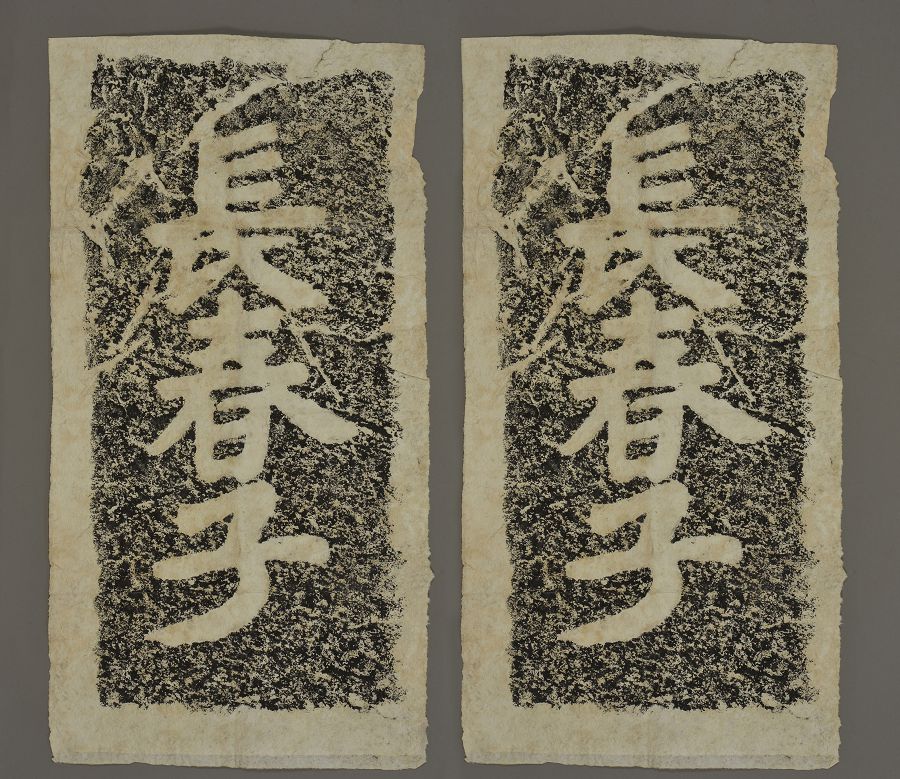 長春子
長春子